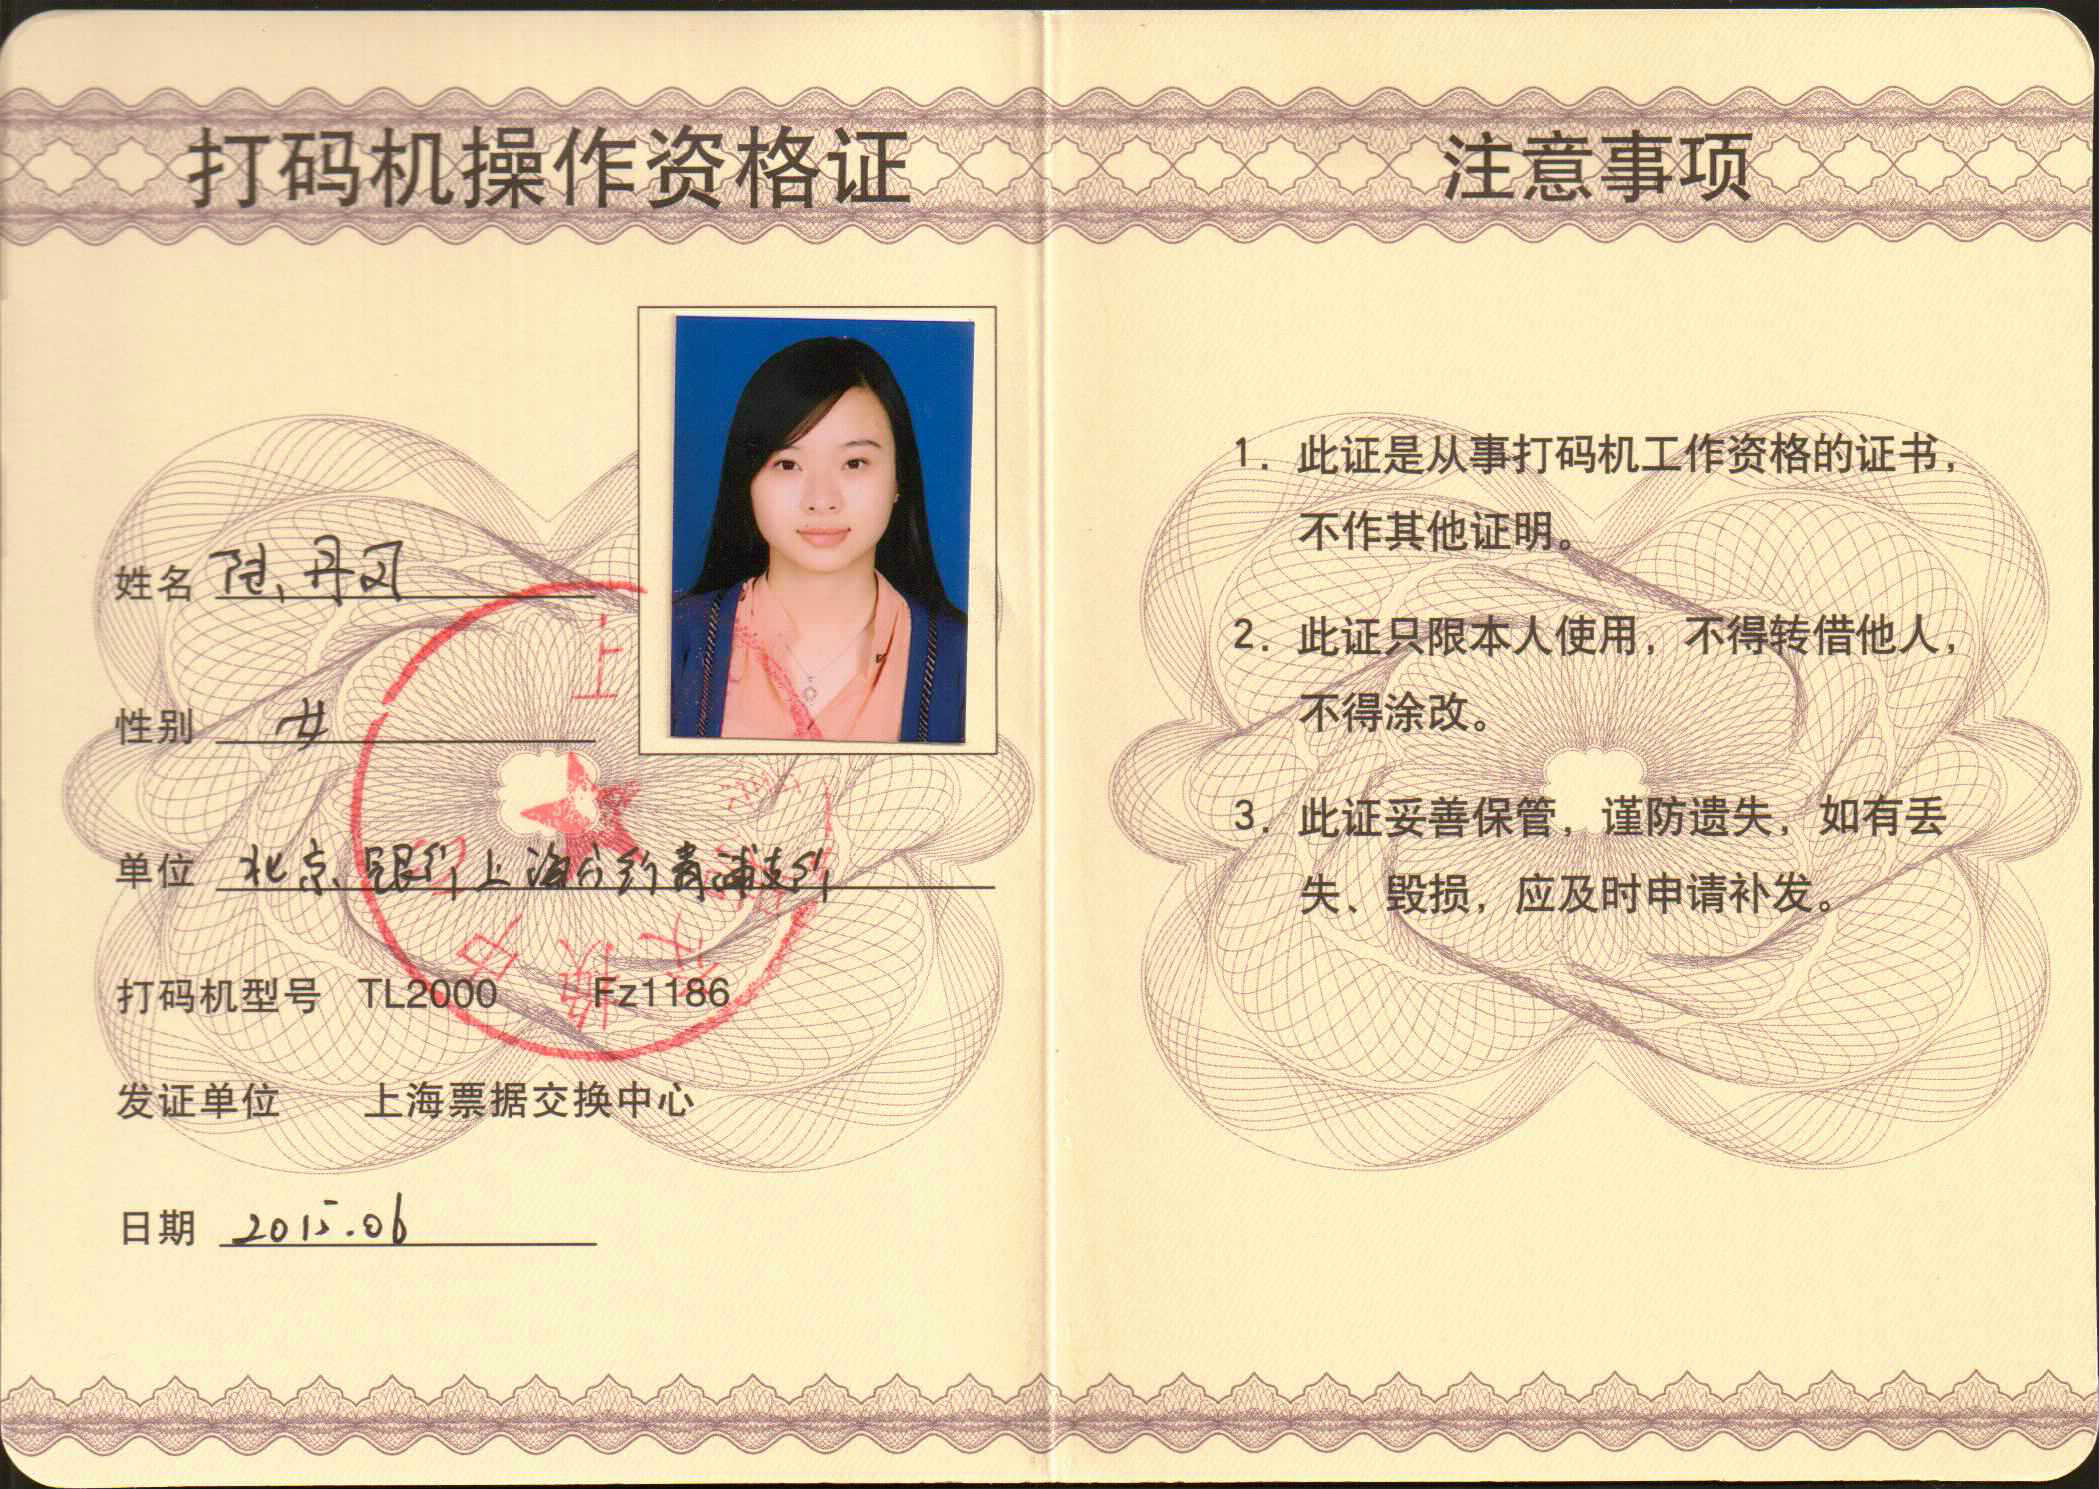 打码机操作资格证
姓名 陈丹凤
性别 女
单位 北京银行上海分行青浦支行
打码机型号 TL2000 Fz1186
发证单位 上海票据交换中心
日期 2015.06
注意事项
1. 此证是从事打码机工作资格的证书，
不作其他证明。
2. 此证只限本人使用，不得转借他人，
不得涂改。
3. 此证妥善保管，谨防遗失，如有丢
失、毁损，应及时申请补发。